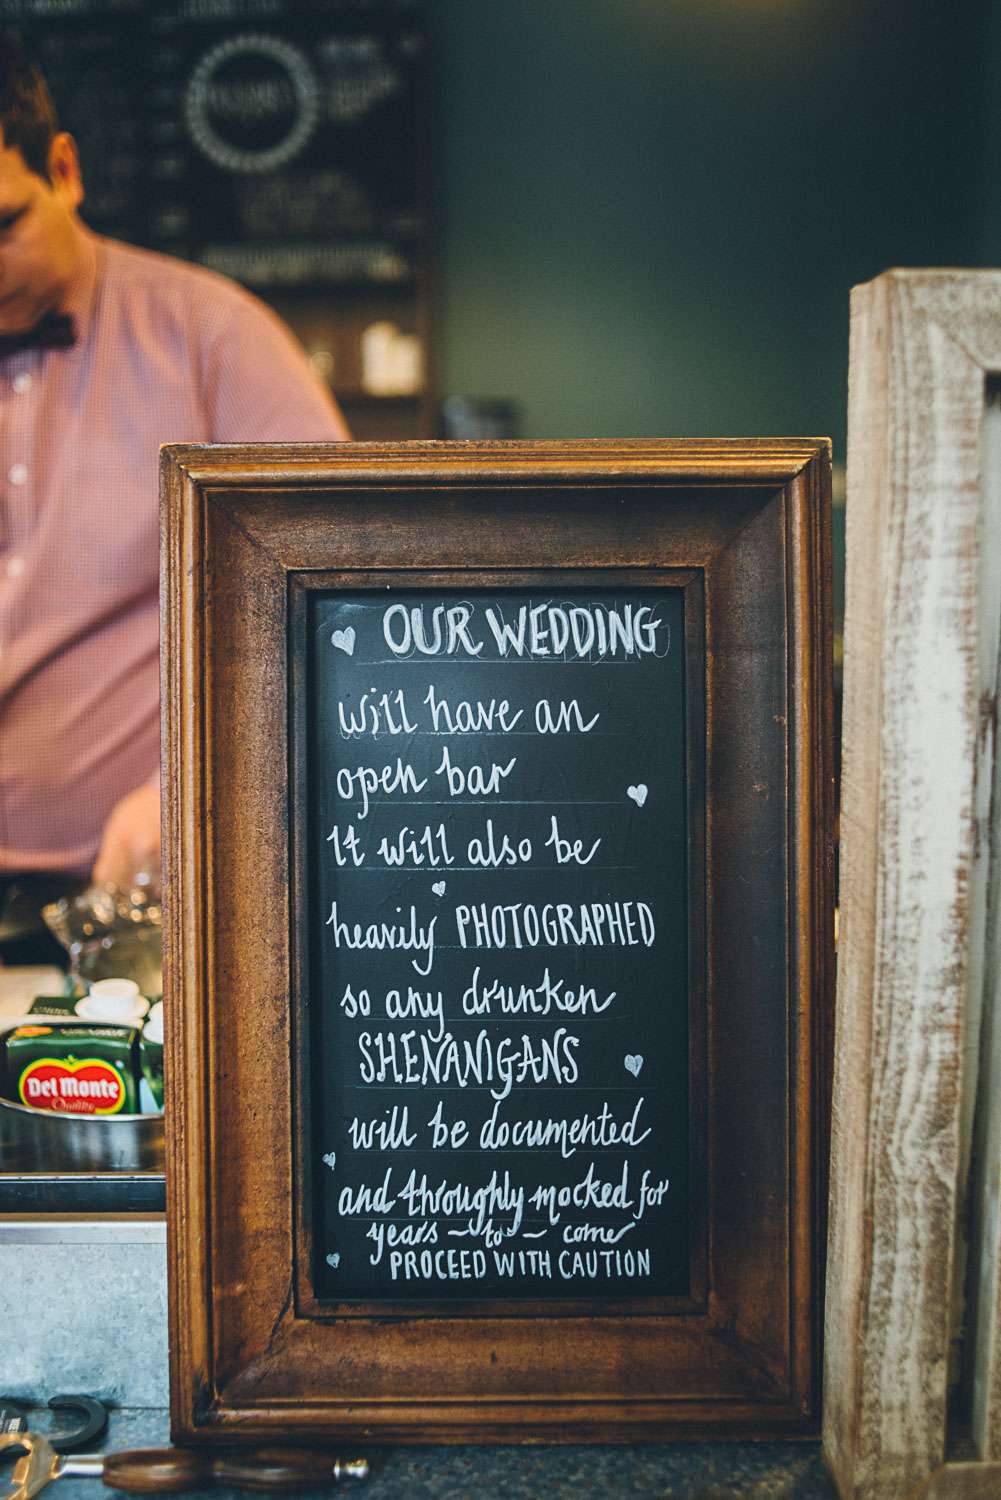 OUR WEDDING
will have an
open bar
It will also be
heavily PHOTOGRAPHED
so any drunken
SHENANIGANS
will be documented
and throughly mocked for
years ~ to ~ come
PROCEED WITH CAUTION
Del Monte
Quality